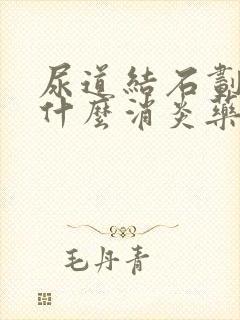 尿道結石劃
什麼消炎藥
毛丹青